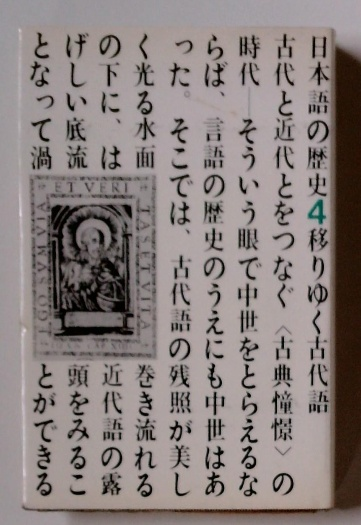 日本語の歴史4移りゆく古代語
古代と近代とをつなぐ〈古典憧憬〉の
時代―そういう眼で中世をとらえるな
らば、言語の歴史のうえにも中世はあ
った。そこでは、古代語の残照が美し
く光る水面
の下に、は
げしい底流
となって渦
巻き流れる
近代語の露
頭をみるこ
とができる
ET VERI
TAS ET VITA